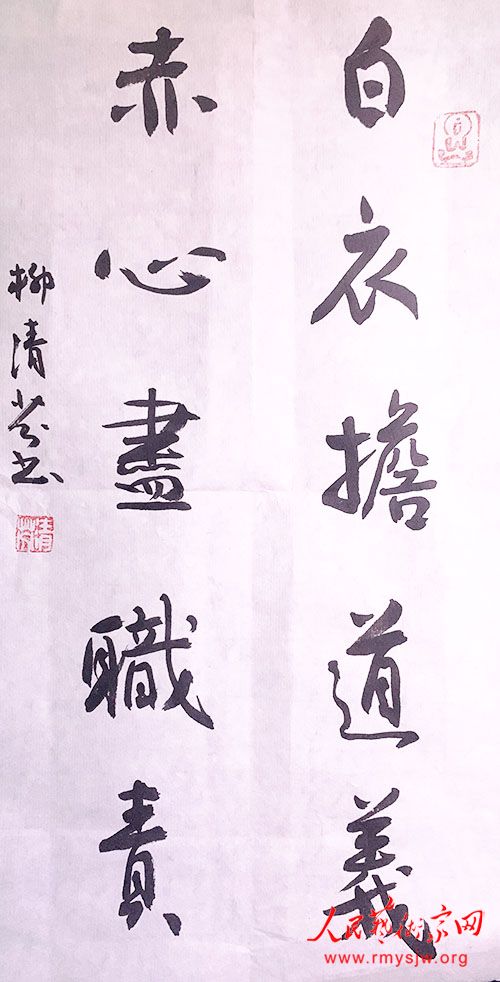 白衣擔道義
赤心盡職責
柳清芬书
人民艺术家网
www.rmysjw.org